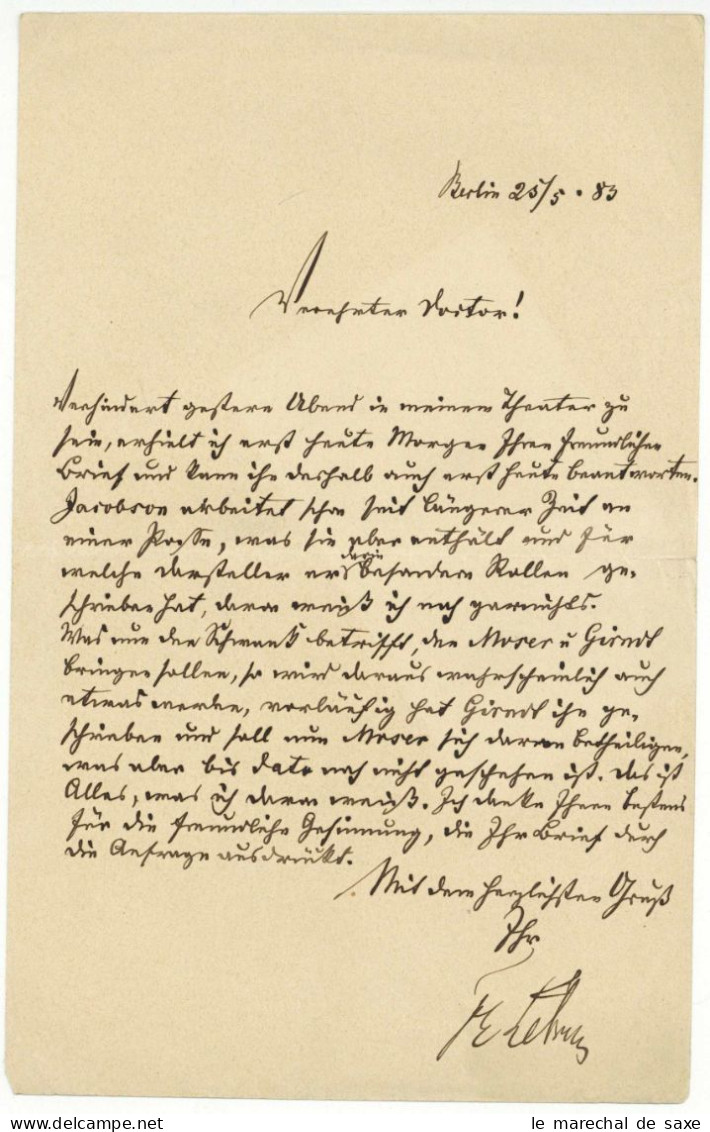 Berlin 25/5. 83
Verehrter Doctor!
Verhindert gestern Abend in meinem Theater zu
sein, erhielt ich erst heute Morgen Ihren freundlichen
Brief und kann ihn deshalb auch erst heute beantworten.
Jacobson arbeitet schon seit längerer Zeit an
einer Posse, was sie aber enthält und für
welche Darsteller er darin besondere Rollen ge-
schrieben hat, davon weiß ich noch garnichts.
Was nun den Schwank betrifft, den Moser u Girndt
bringen sollen, so wird daraus wahrscheinlich auch
etwas werden, vorläufig hat Girndt ihn ge-
schrieben und soll nun Moser sich daran betheiligen,
was aber bis dato noch nicht geschehen ist. Das ist
Alles, was ich davon weiß. Ich danke Ihnen bestens
für die freundliche Gesinnung, die Ihr Brief durch
die Anfrage ausdrückt.
Mit dem herzlichsten Gruß
Ihr
le marechal de saxe